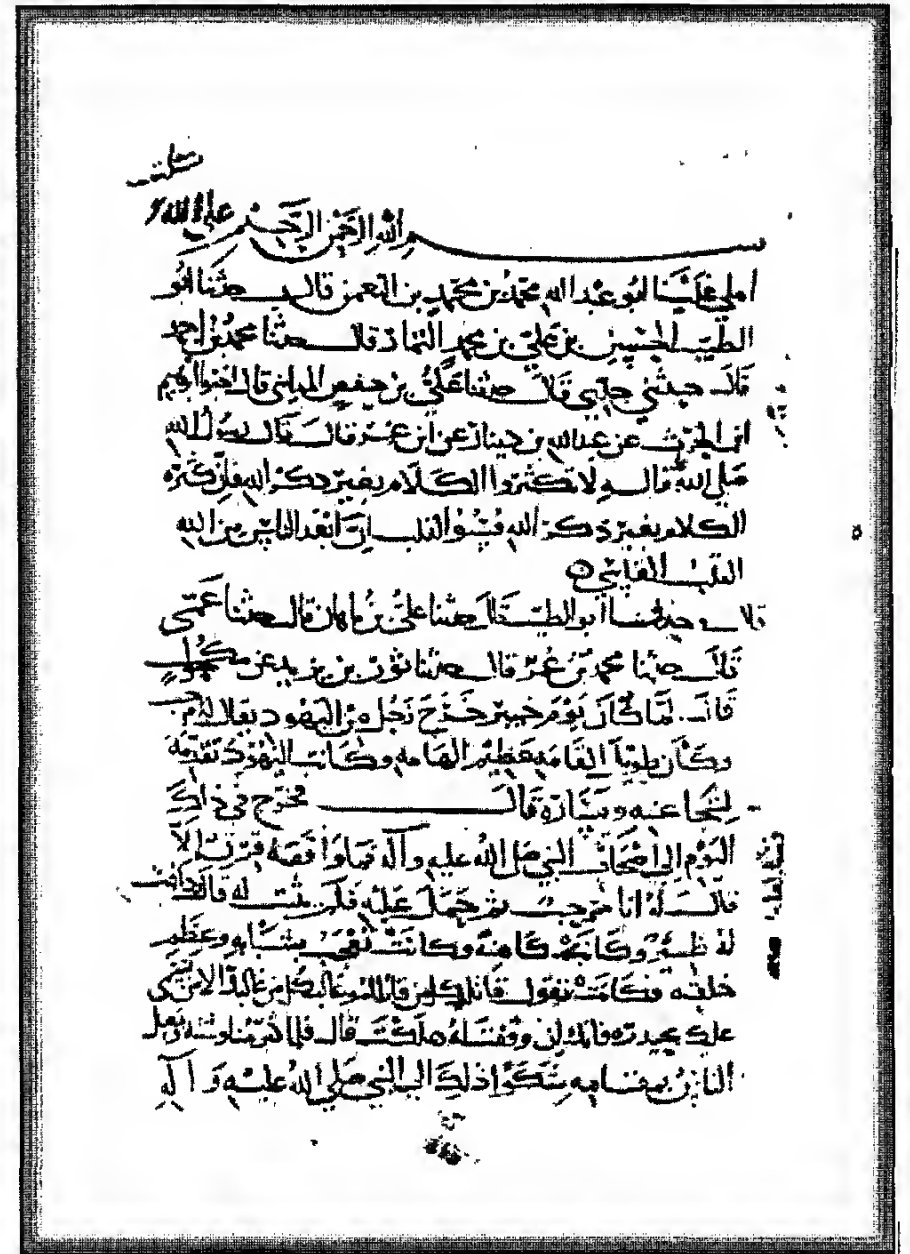 بسم الله الرحمن الرحيم
املى علينا ابو عبد الله محمد بن محمد بن النعمن قال حدثنا ابو
الطيب الحسين بن علي بن محمد التمار قال حدثنا محمد بن احمد
قال حدثني جدي قال حدثنا علي بن حفص المدايني قال ابرهيم
ابن الحرث عن عبدالله بن دينار عن ابن عمر قال قال رسول الله
صلى الله قال لا تكثروا الكلام بغير ذكر الله فان كثرة
الكلام بغير ذكر الله قسو القلب ان ابعد الناس من الله
القلب القاسي
قال حدثنا ابو الطيب قال حدثنا علي بن ماهان قال حدثنا عمي
قال حدثنا محمد بن عمر قال حدثنا ثور بن يزيد عن مكحول
قال لما كان يوم خيبر خرج رجل من اليهود يقال له مرحب
وكان طويل القامة عظيم الهامه وكانت اليهود تقدمه
لشجاعته ويساره قال فخرج في ذلك
اليوم الى اصحاب النبي صلى الله عليه وآله فما واقفه قرن الا
قال له انا مرحب ثم حمل عليه فلم يثبت له قال وكانت
له ظئر وكانت كاهنة وكانت تعجب بشبابه وعظم
خلقه وكانت تقول قاتل كل من قاتلك وغالب كل من غالبك الا من تسمى
عليك بحيدرة فانك ان وقفت له هلكت قال فلما
الناس بمقامه شكوا ذلك الى النبي صلى الله عليه و آله